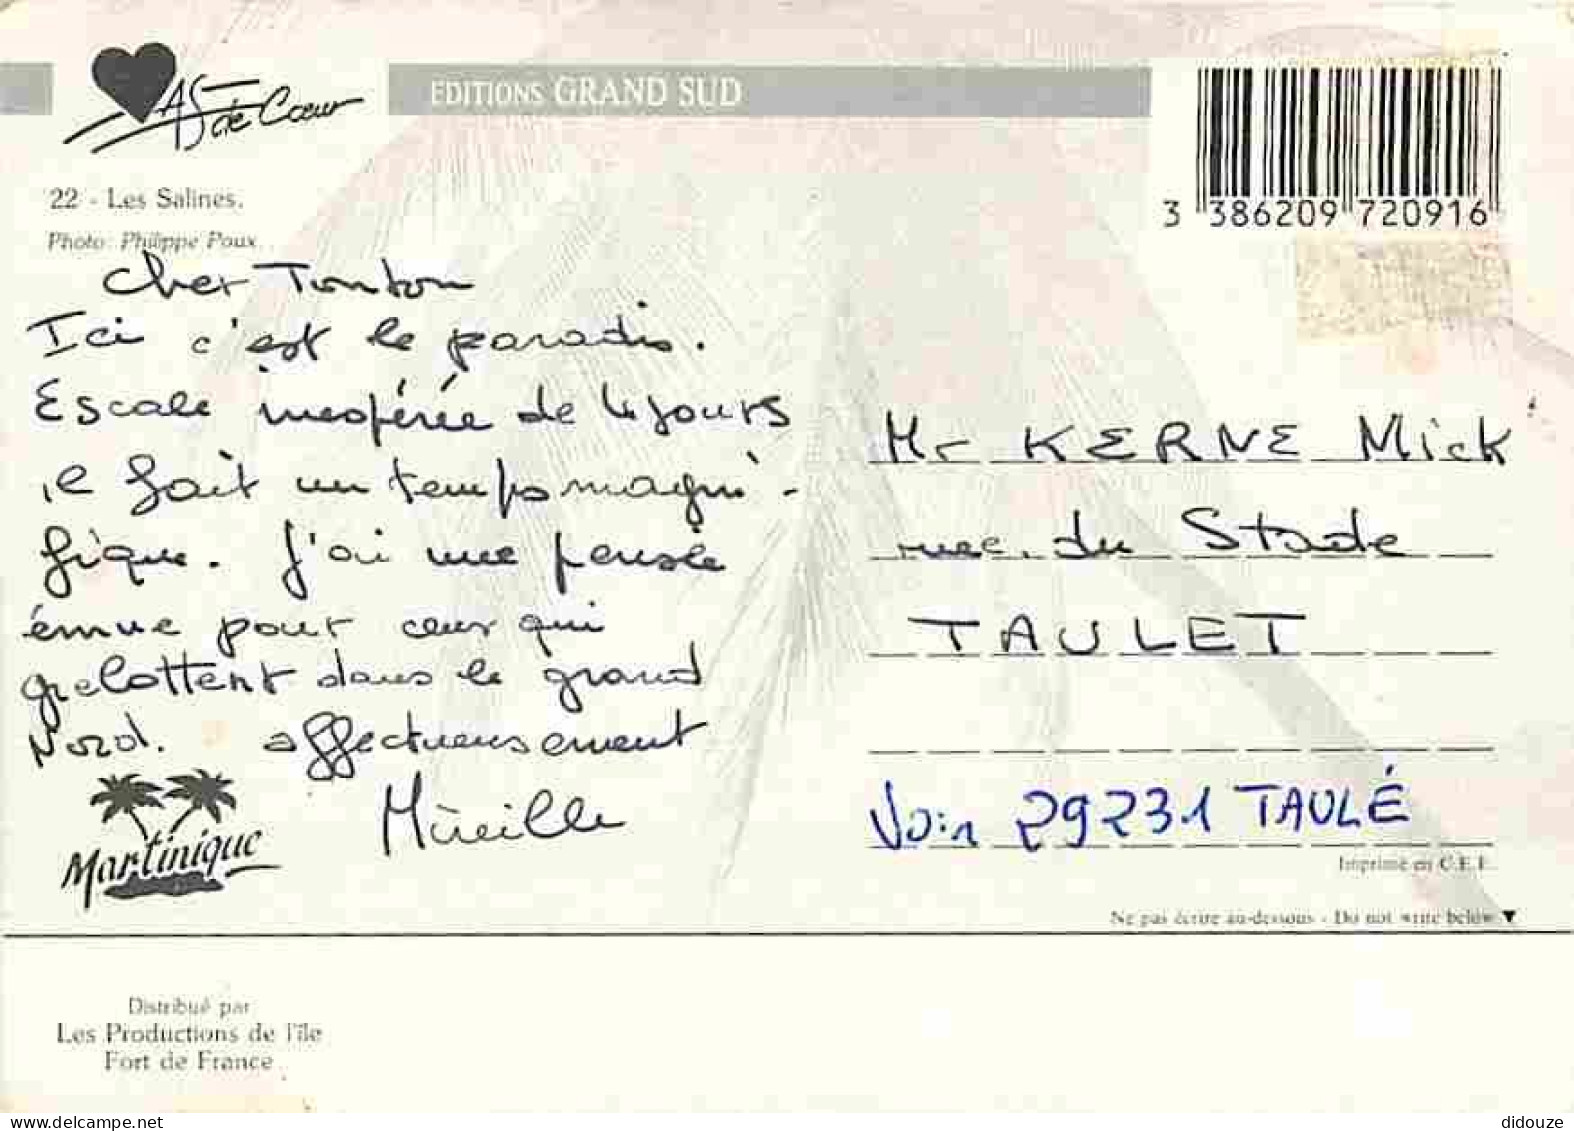 As de Cœur
EDITIONS GRAND SUD
3 386209 720916
22 - Les Salines.
Photo: Philippe Poux
Cher Tonton
Ici c'est le paradis.
Escale inespérée de 4 jours
il fait un temps magni-
fique. J'ai une pensée
émue pour ceux qui
grelottent dans le grand
Nord. affectueusement
Mireille
Martinique
Mr KERNE Mick
rue du Stade
TAULET
Voir 29231 TAULÉ
Imprimé en C.E.E.
Ne pas écrire au-dessous - Do not write below ▼
Distribué par
Les Productions de l'île
Fort de France
didouze